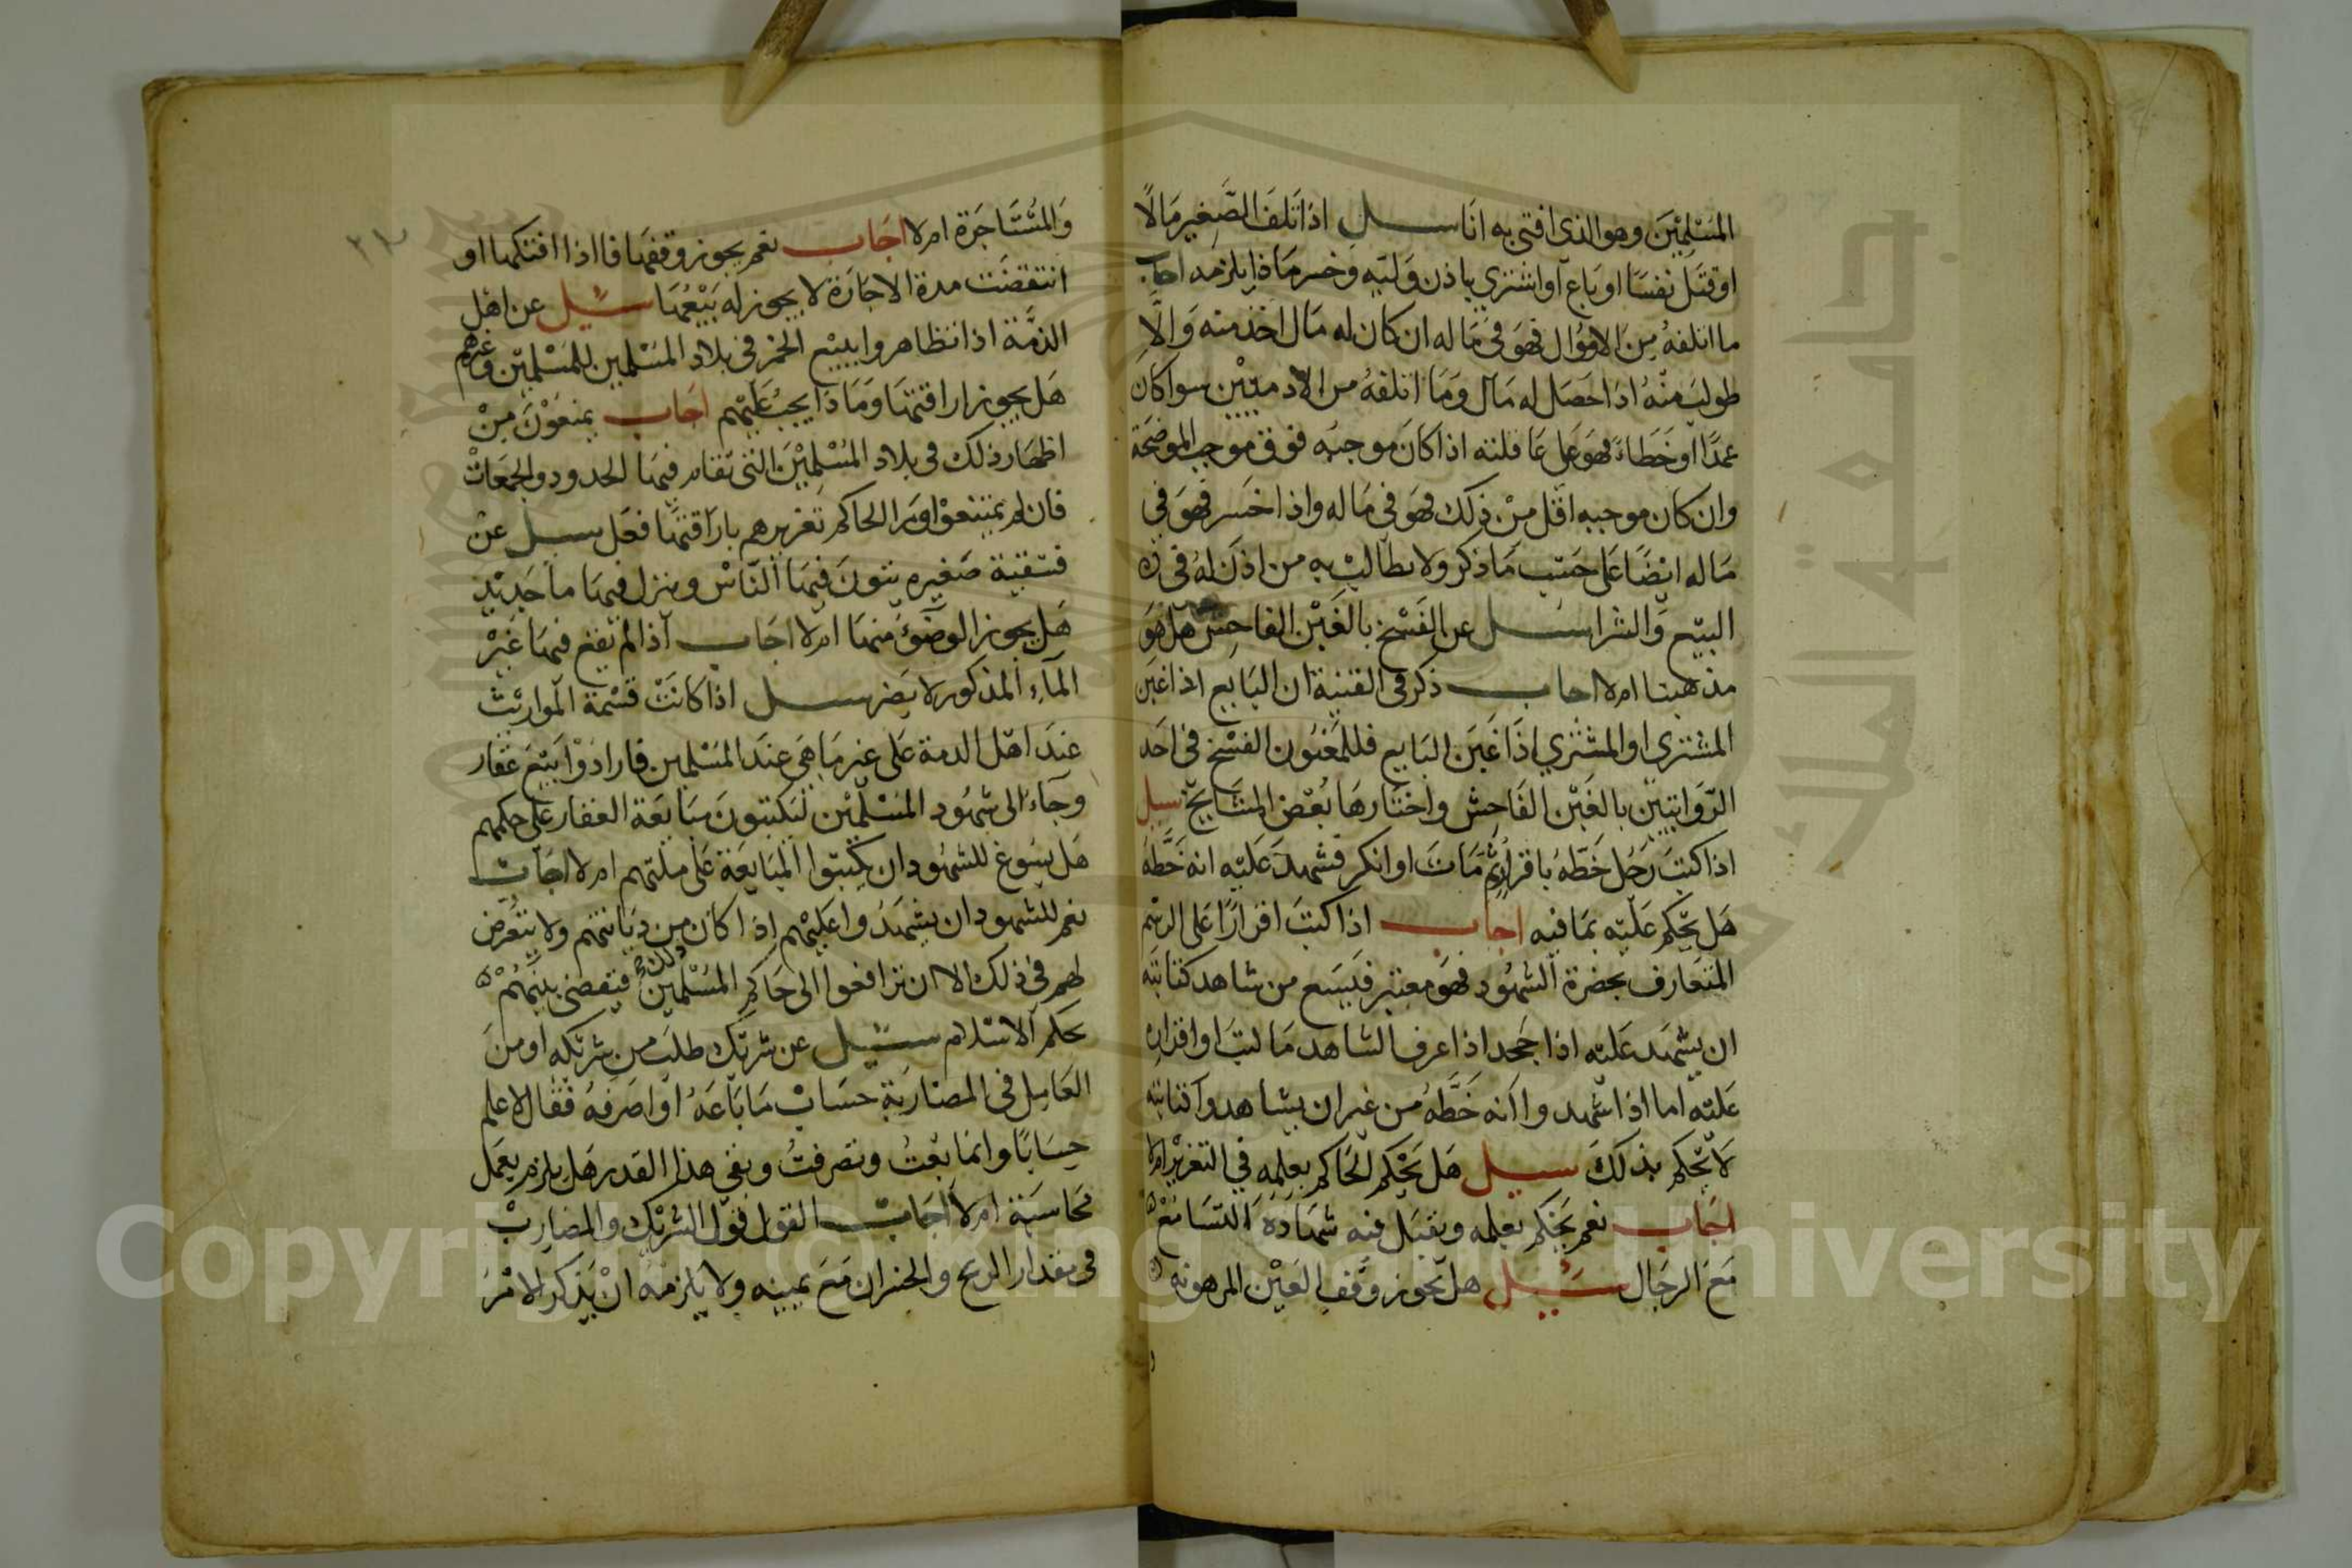 المسلمين وهو الذي افتى به انا سيل اذا تلف الصغير مالا
او قتل نفسا او باع او اشترى باذن وليه وخسر ماذا يلزمه اجاب
ما اتلفه من الاموال فهو في ماله ان كان له مال اخذ منه والا
طولب منه اذا حصل له مال وما اتلفه من الادميين سوا كان
عمدا او خطاء فهو على عاقلته اذا كان موجبه فوق موجب الموضحة
وان كان موجبه اقل من ذلك فهو في ماله واذا خسر فهو في
ماله ايضا على حسب ما ذكر ولا يطالب به من اذن له في
البيع والشرا سيل عن الفسخ بالغبن الفاحش هل هو
مذهبنا ام لا اجاب ذكر في القنية ان البايع اذا غبن
المشتري او المشتري اذا غبن البايع فللمغبون الفسخ في احد
الروايتين بالغبن الفاحش واختارها بعض المشايخ سيل
اذا كتب رجل خطه باقرار ثم مات او انكر فشهد عليه انه خطه
هل يحكم عليه بما فيه اجاب اذا كتب اقرارا على الرسم
المتعارف بحضرة الشهود فهو معتبر فيسع من شاهد كتابته
ان يشهد عليه اذا جحد اذا عرف الشاهد ما كتب او اقراه
عليه اما اذا شهدوا انه خطه من غير ان يشاهدوا كتابته
لا يحكم بذلك سيل هل يحكم الحاكم بعلمه في التعزير ام لا
اجاب نعم يحكم بعلمه ويقبل فيه شهادة النسا مع
مع الرجال سيل هل يجوز وقف العين المرهونة
والمستاجرة ام لا اجاب نعم يجوز وقفها فااذا افتكها او
انتقضت مدة الاجارة لا يجوز له بيعها سيل عن اهل
الذمة اذا تظاهروا ببيع الخمر في بلاد المسلمين للمسلمين وغيرهم
هل يجوز اراقتها وماذا يجب عليهم اجاب يمنعون من
اظهار ذلك في بلاد المسلمين التي تقام فيها الحدود والجمعات
فان لم يمتنعوا ورا الحاكم تعزيرهم باراقتها فعل سيل عن
فسقية صغيره يتون فيها الناس وينزل فيها ما جديد
هل يجوز الوضوء منها ام لا اجاب اذا لم يقع فيها غير
الماء المذكور لا يضر سيل اذا كانت قسمة المواريث
عند اهل الدمة على غير ما هي عند المسلمين فارادوا بيع عقار
وجاء الى شهود المسلمين ليكتبون مبايعة العقار على حكمهم
هل يسوغ للشهود ان يكتبوا المبايعة على ملتهم ام لا اجاب
نعم للشهود ان يشهدوا عليهم اذا كان من ديانتهم ولا يتعرض
لهم في ذلك الا ان ترافعوا الى حاكم المسلمين فيقضي بينهم
بحكم الاسلام سيل عن شريك طلب من شريكه او من
العامل في المضاربة حساب ما باعه او اصرفه فقال لا اعلم
حسابا وانما بعت وتصرفت وبقي هذا القدر هل يلزم بعمل
محاسبة ام لا اجاب القول قول الشريك والمضارب
في مقدار الربح والخسران مع يمينه ولا يلزمه ان يذكر الامر
Copyright © King Saud University
جامعة الملك سعود